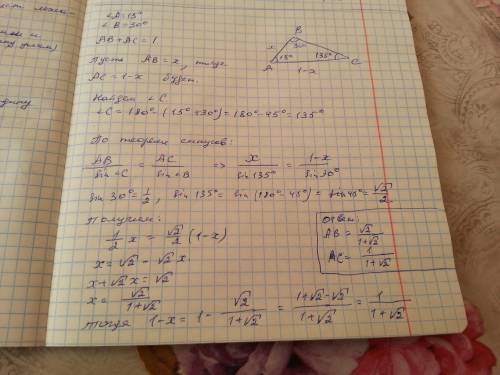 ∠A=15°
∠B=30°
AB+AC=1.
Пусть AB=x, тогда
AC=1-x будет.
Найдем ∠C
∠C=180°-(15°+30°)=180°-45°=135°
B
30°
x
A
15°
135°
C
1-x
По теореме синусов:
AB/sin∠C = AC/sin∠B => x/sin135° = 1-x/sin30°
sin 30°=1/2, sin135°=sin(180°-45°)=sin45°=√2/2
Получим:
1/2 x = √2/2 (1-x)
x=√2-√2x
x+√2x=√2
x= √2/1+√2
тогда 1-x= 1- √2/1+√2 = 1+√2-√2/1+√2 = 1/1+√2
Ответ:
AB= √2/1+√2
AC= 1/1+√2